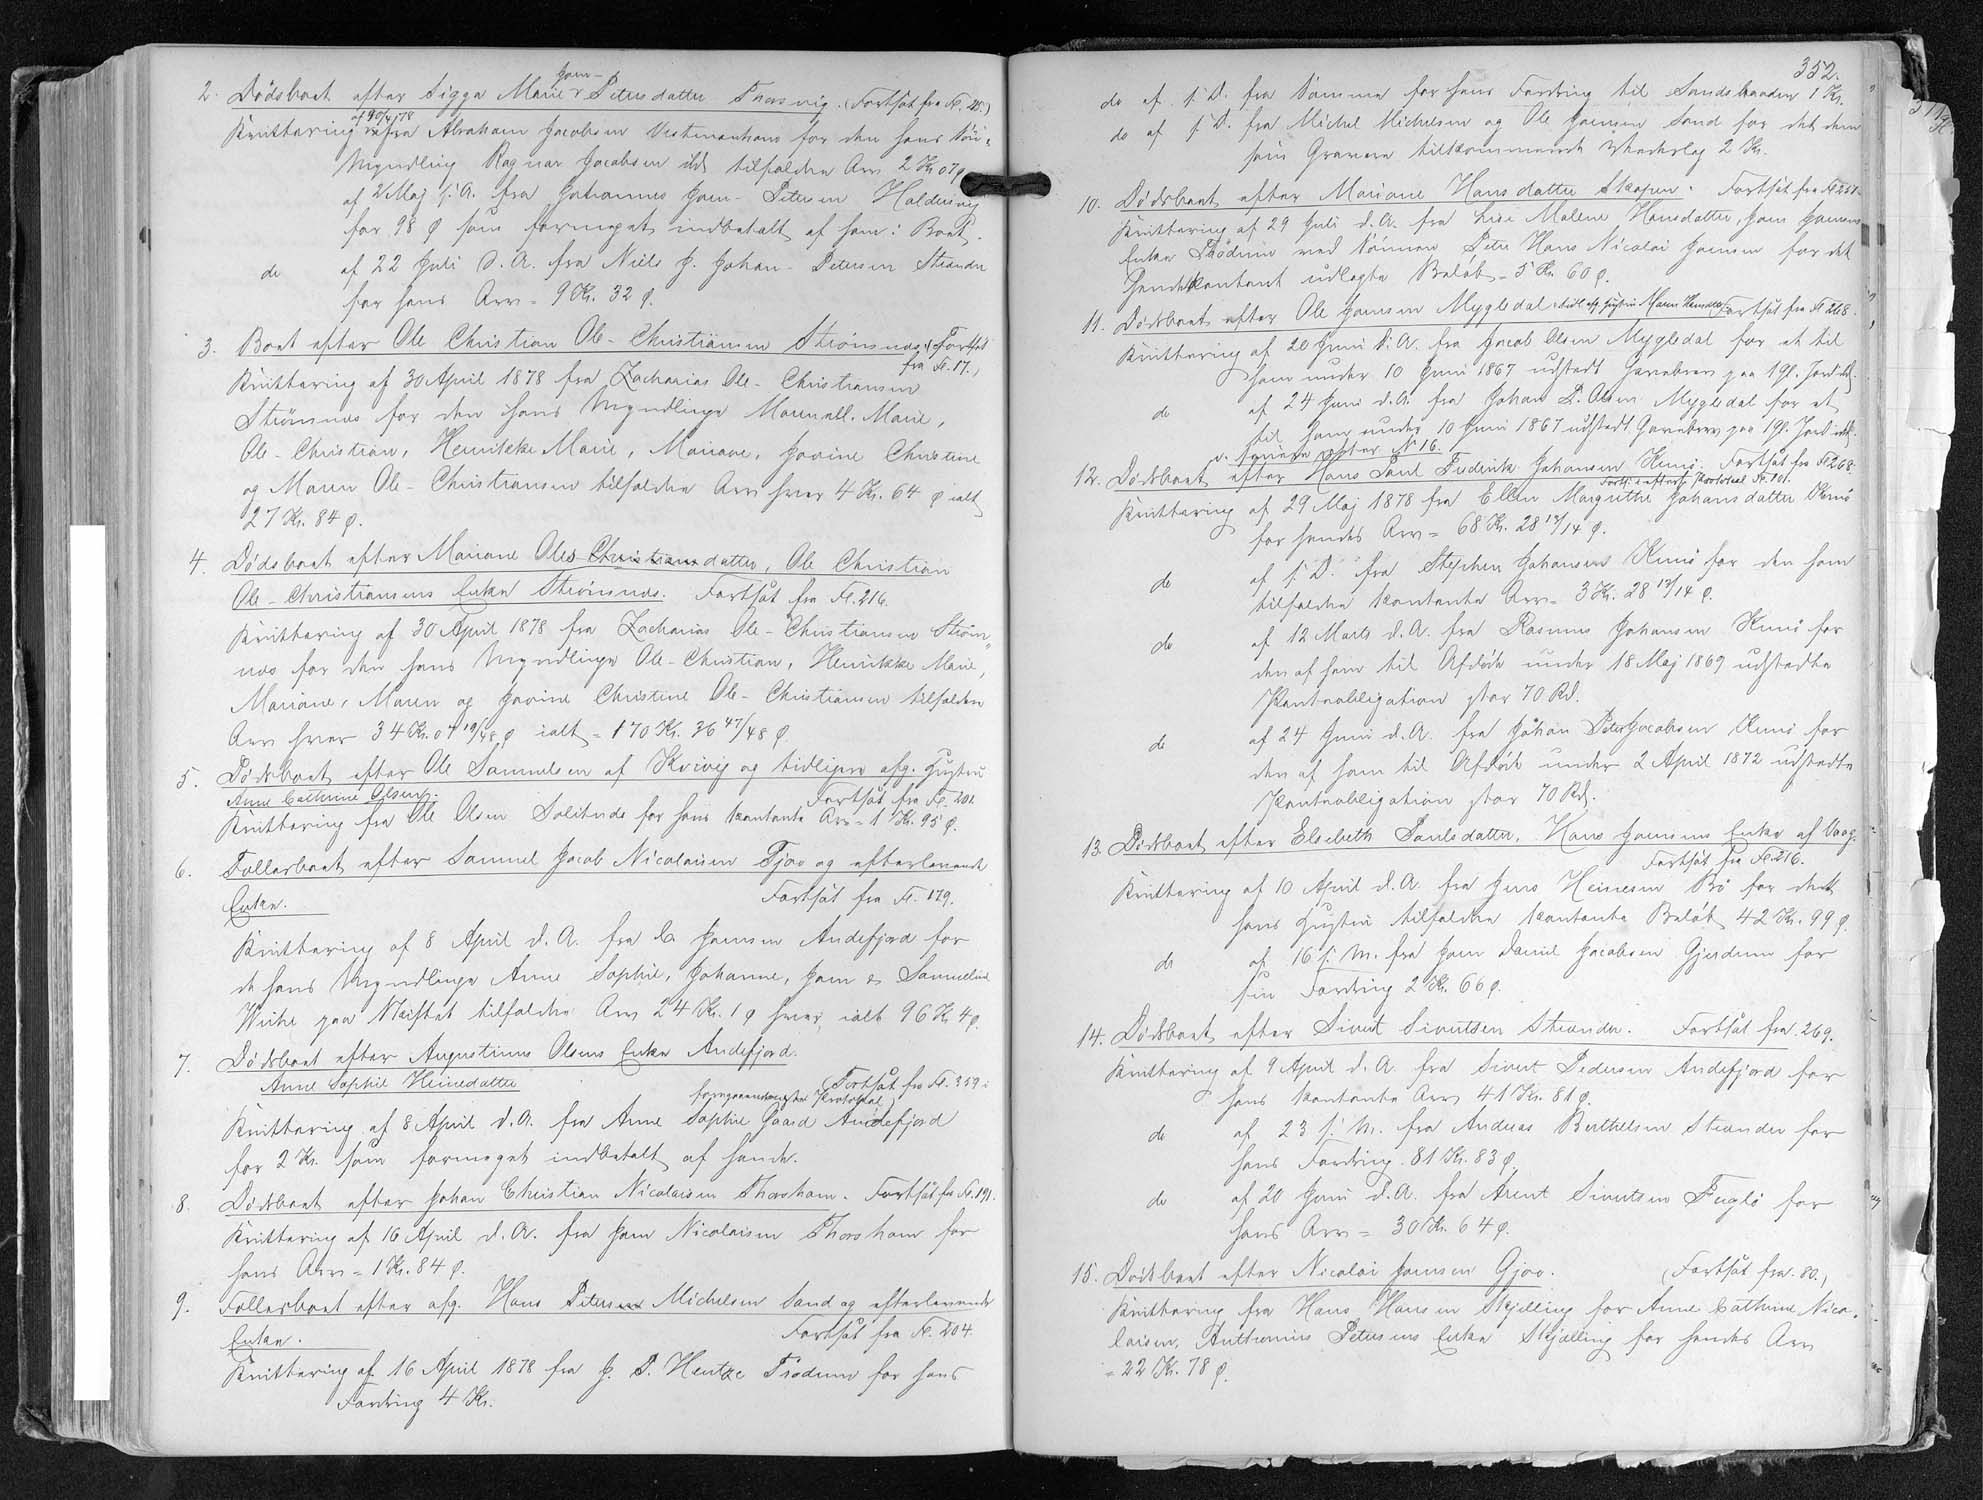 2. Dödsboet efter Sigga Marie Joen-Petersdatter Thorsvig. (Fortsat fra Fl.
Kvittering af 30/4 78 fra Abraham Jacobsen Vestmanhavn for den hans
Myndling Ragnar Jacobsen tilfaldne Arv 2 Kr. 07 ø
af 2 Maj s. A. fra Johannes Joen-Petersen Haldersvig
for 98 ø som formeget indbetalt af ham i Boet.
do af 22 Juli d. A. fra Niels J. Johan-Petersen Strænder
for hans Arv = 9 Kr. 32 ø.
3. Boet efter Ole Christian Ole-Christiansen Strömnæs. (Fortsat
fra Fl. 17.)
Kvittering af 30 April 1878 fra Zacharias Ole-Christiansen
Strömnæs for den hans Myndlinge Marie,
Ole-Christian, Henrikke Marie, Mariane, Jovine Christine
og Maren Ole-Christiansen tilfaldne Arv hver 4 Kr. 64 ø ialt
27 Kr. 84 ø.
4. Dödsboet efter Mariane Ole-Christiansdatter, Ole Christian
Ole-Christiansens Enke Strömnæs. Fortsat fra Fl. 216.
Kvittering af 30 April 1878 fra Zacharias Ole-Christiansen Ström
næs for den hans Myndlinge Ole-Christian, Henrikke Marie,
Mariane, Maren og Jovine Christine Ole-Christiansen tilfaldne
Arv hver 34 Kr. 07 19/48 ø ialt = 170 Kr. 36 47/48 ø.
5. Dödsboet efter Ole Samuelsen af Kvivig og tidligere afg. Hustru
Anne Cathrine Olsen. Fortsat fra Fl. 201.
Kvittering fra Ole Olsen Solitude for hans kontante Arv = 1 Kr. 95 ø.
6. Fællesboet efter Samuel Jacob Nicolaisen Gjov og efterlevende
Enke. Fortsat fra Fl. 179.
Kvittering af 8 April d. A. fra Joensen Andefjord for
de hans Myndlinge Anne Sophie, Johanne, Joen & Samueline
Weihe paa tilfaldne Arv 24 Kr. 1 ø hver, ialt 96 Kr. 4 ø.
7. Dödsboet efter Augustinus Olsens Enke Andefjord.
Anne Sophie Heinedatter (Fortsat fra Fl. 359 i
foregaaende Protokol)
Kvittering af 8 April d. A. fra Anne Sophie Gaard Andefjord
for 2 Kr. som formeget indbetalt af hende.
8. Dödsboet efter Johan Christian Nicolaisen Thorshavn. Fortsat fra Fl. 191.
Kvittering af 16 April d. A. fra Joen Nicolaisen Thorshavn for
hans Arv = 1 Kr. 84 ø.
9. Fællesboet efter afg. Hans Petersen Michelsen Sand og efterlevende
Enke. Fortsat fra Fl. 204.
Kvittering af 16 April 1878 fra J. P. Hentze Trödum for hans
Fordring 4 Kr.
352.
do af s. D. fra Samme for hans Fordring til 1 Kr.
do af s. D. fra Michel Michelsen og Ole Joensen Sand for det dem
som Gravere tilkommende Vederlag 2 Kr.
10. Dödsboet efter Mariane Hansdatter Skopen. Fortsat fra Fl 251
Kvittering af 29 Juli d. A. fra Malene Hansdatter, Joen Joensens
Enke Trödum ved Sönnen Peter Hans Nicolai Joensen for det
hende kontant udlagte Belöb = 5 Kr. 60 ø.
11. Dödsboet efter Ole Joensen Mygledal tidl. afg. Hustru Maren Fortsat fra Fl 268.
Kvittering af 20 Juni d. A. fra Jacob Olsen Mygledal for et til
ham under 10 Juni 1867 udstedt Gavebrev paa 1 Gl. Jord
do af 24 Juni d. A. fra Johan P. Olsen Mygledal for et
til ham under 10 Juni 1867 udstedt Gavebrev paa 1 Gl. Jord
v. senere efter N 16.
12. Dödsboet efter Hans Paul Frederik Johansen Kunö. Fortsat fra Fl 268.
Forts. i efterf. Protokol Fl. 101.
Kvittering af 29 Maj 1878 fra Ellen Margrethe Johansdatter Kunö
for hendes Arv = 68 Kr. 28 13/14 ø.
do af s. D. fra Stephen Johansen Kunö for den ham
tilfaldne kontante Arv = 3 Kr. 28 13/14 ø.
do af 12 Marts d. A. fra Rasmus Johansen Kunö for
den af ham til Afdöde under 18 Maj 1869 udstedte
Panteobligation stor 70 Rd.
do af 24 Juni d. A. fra Johan Peter Jacobsen Kunö for
den af ham til Afdöde under 2 April 1872 udstedte
Panteobligation stor 70 Rd.
13. Dödsboet efter Elsebeth Poulsdatter, Hans Joensens Enke af Vaag.
Fortsat fra Fl. 216.
Kvittering af 10 April d. A. fra Jens Heinesen Bö for det
hans Hustru tilfaldne kontante Belöb 42 Kr. 99 ø
do af 16 s. M. fra Joen Daniel Jacobsen Gjerdum for
sin Fordring 2 Kr. 66 ø.
14. Dödsboet efter Sivert Sivertsen Strænder. Fortsat fra 269.
Kvittering af 9 April d. A. fra Sivert Pedersen Andefjord for
hans kontante Arv 41 Kr. 81 ø.
do af 23 s. M. fra Andreas Berthelsen Strænder for
hans Fordring 81 Kr. 83 ø
do af 20 Juni d. A. fra Arent Sivertsen Fuglö for
hans Arv = 30 Kr. 64 ø.
15. Dödsboet efter Nicolai Joensen Gjov. (Fortsat fra 80.)
Kvittering fra Hans Hansen Skjelling for Anne Cathrine Nico-
laisen, Anthonius Petersens Enke Skjælling for hendes Arv
= 22 Kr. 78 ø.